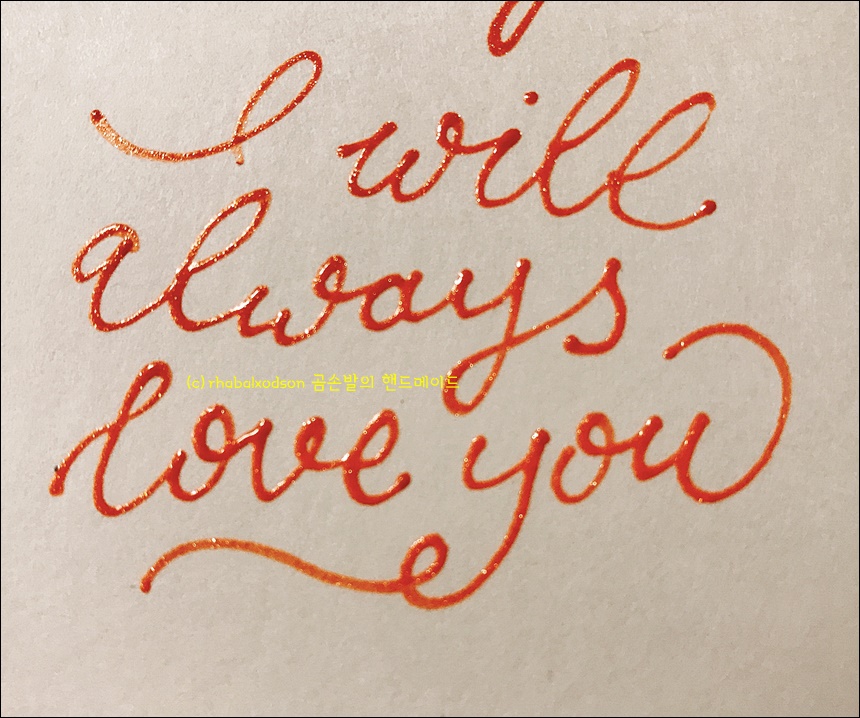 I will
always
(c) rhabalxodson 곰손발의 핸드메이드
love you